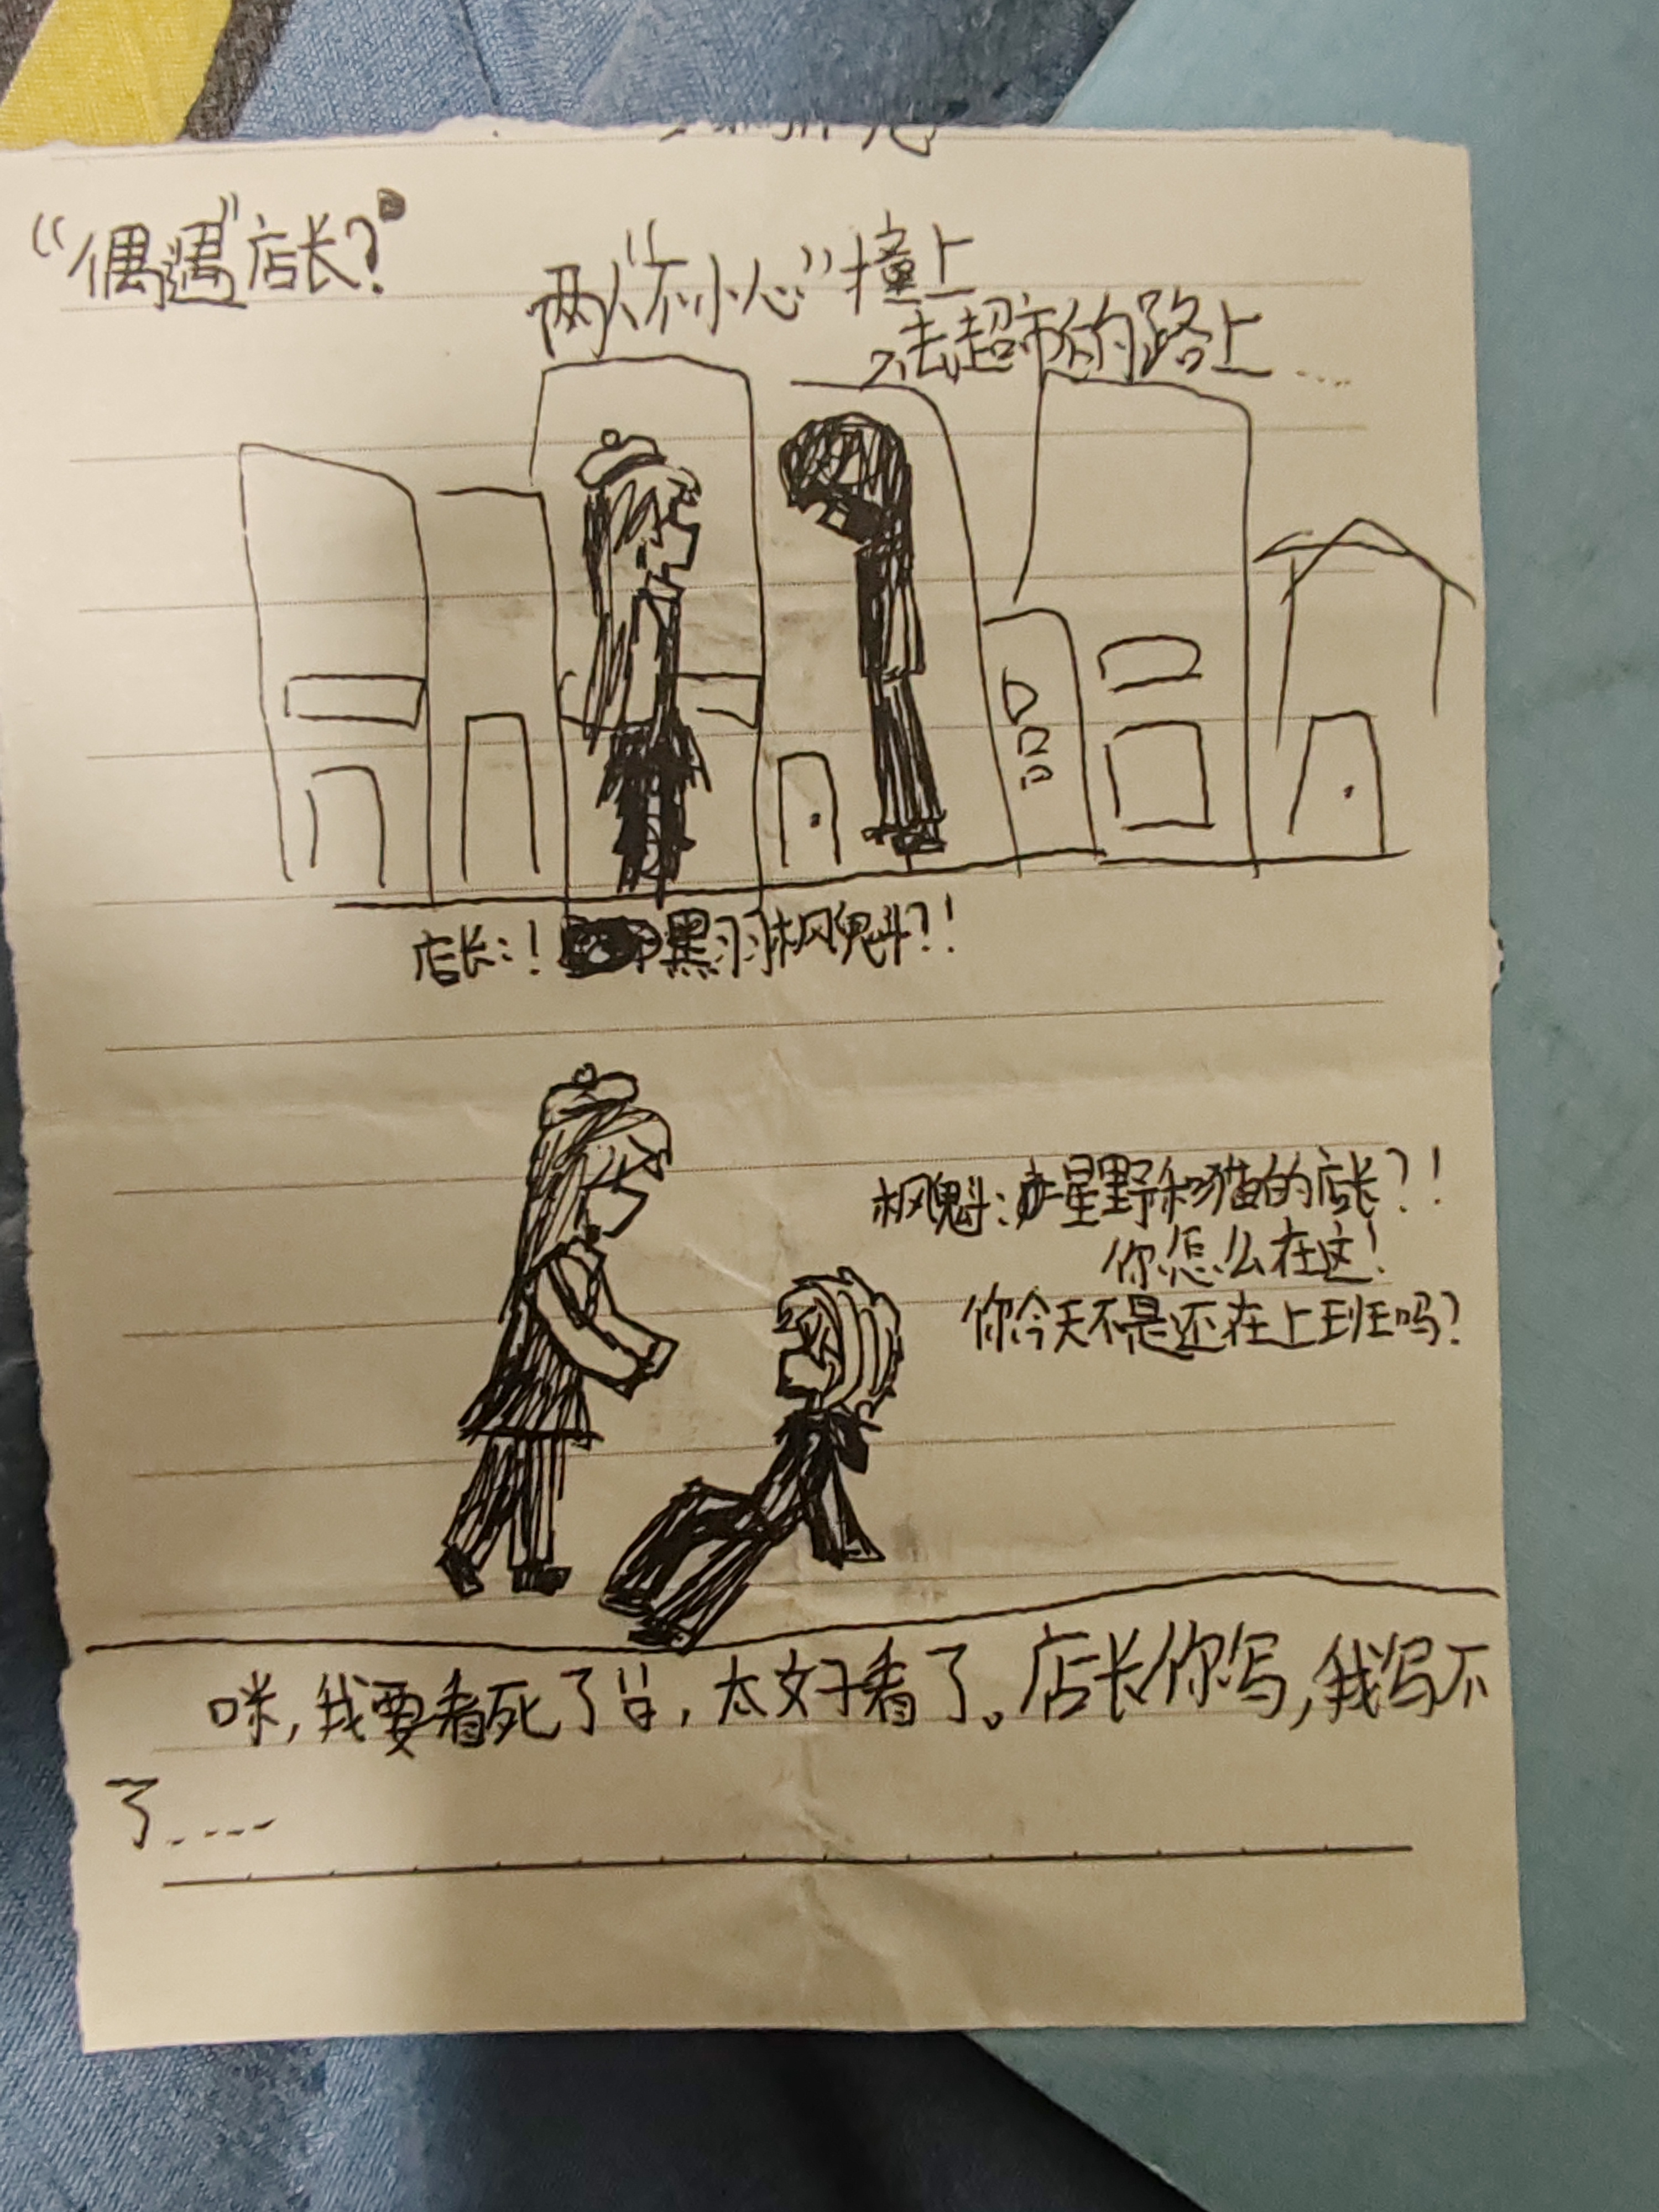 “偶遇”店长?
两人“不小心”撞上
去超市的路上....
店长:! 黑羽枫魁?!
枫魁:星野和猫的店长?!
你怎么在这!
你今天不是还在上班吗?
咪,我要看死了,太好看了。店长你写,我写不
了.....